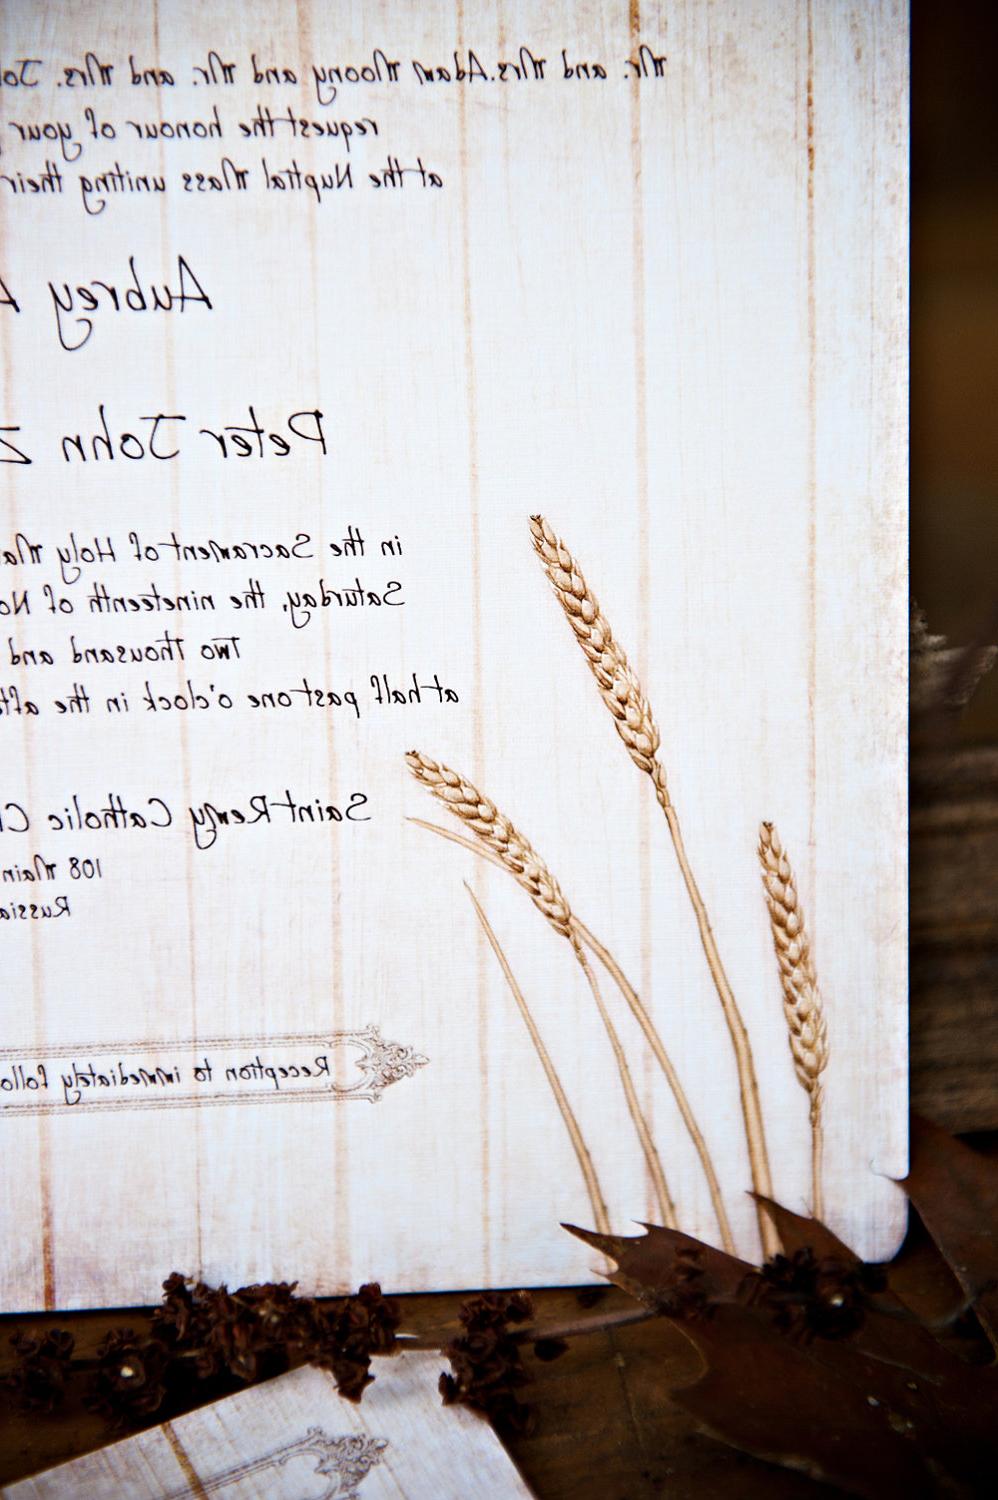 Mr. and Mrs. Adam Moony and Mr. and Mrs. Jo
request the honour of your
at the Nuptial Mass uniting their
Aubrey A
Peter John Z
in the Sacrament of Holy Ma
Saturday, the nineteenth of No
Two thousand and
at half past one o'clock in the afte
Saint Remy Catholic Ch
108 Main
Russia
Reception to immediately follo